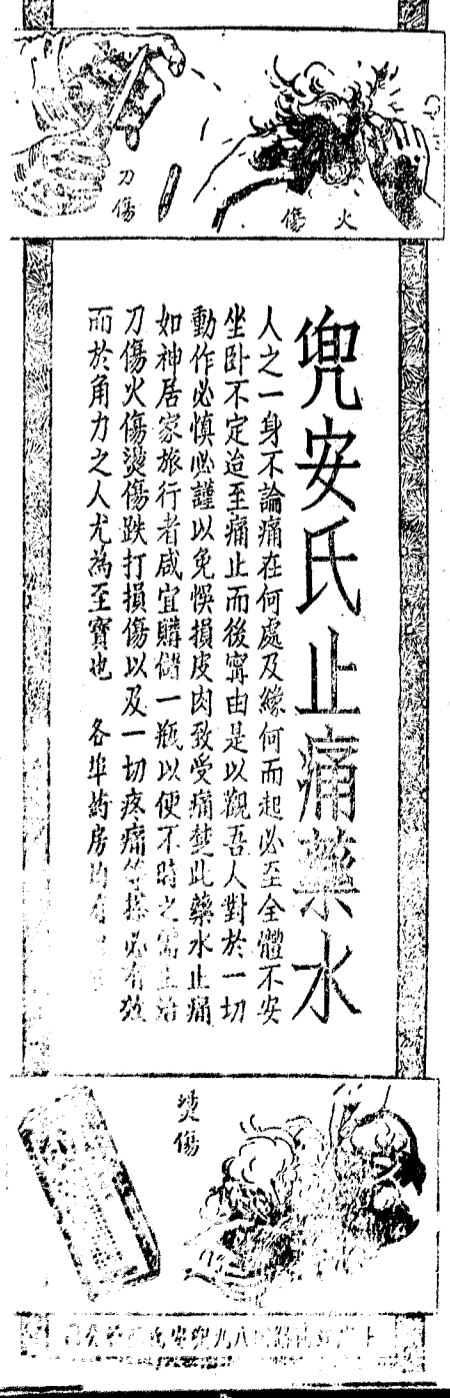 刀傷
火傷
兜安氏止痛藥水
人之一身不論痛在何處及緣何而起必至全體不安
坐卧不定迨至痛止而後甯由是以觀吾人對於一切
動作必慎必謹以免悞損皮肉致受痛楚此藥水止痛
如神居家旅行者咸宜購儲一瓶以便不時之需主治
刀傷火傷燙傷跌打損傷以及一切疼痛等揉必有效
而於角力之人尤為至寶也 各埠葯房均有
燙傷